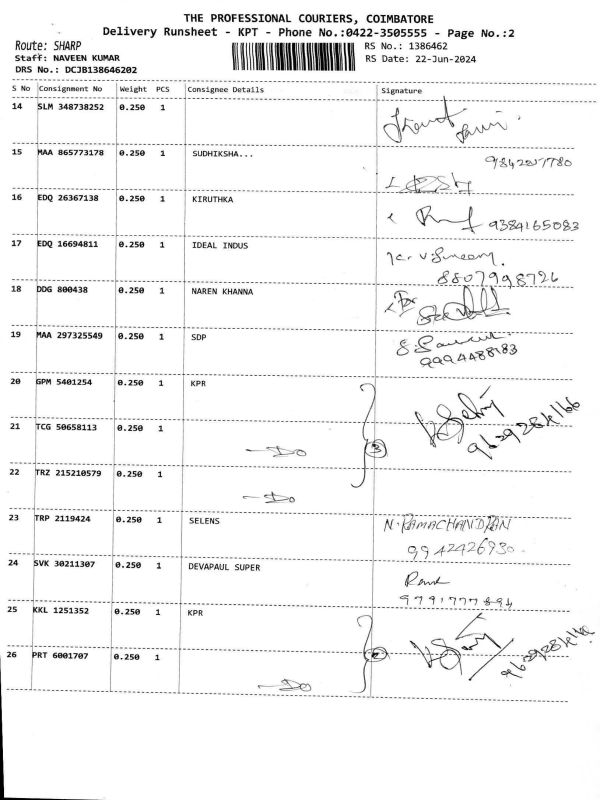 THE PROFESSIONAL COURIERS, COIMBATORE
Delivery Runsheet - KPT - Phone No.:0422-3505555 - Page No.:2
Route: SHARP
RS No.: 1386462
Staff: NAVEEN KUMAR
RS Date: 22-Jun-2024
DRS No.: DCJB138646202
S No Consignment No Weight PCS Consignee Details Signature
14 SLM 348738252 0.250 1
15 MAA 865773178 0.250 1 SUDHIKSHA...
16 EDQ 26367138 0.250 1 KIRUTHKA
9384165083
17 EDQ 16694811 0.250 1 IDEAL INDUS
8807998726
18 DDG 800438 0.250 1 NAREN KHANNA
19 MAA 297325549 0.250 1 SDP
9994488183
20 GPM 5401254 0.250 1 KPR
21 TCG 50658113 0.250 1
-Do 3
22 TRZ 215210579 0.250 1
-Do
23 TRP 2119424 0.250 1 SELENS N. RAMACHANDRAN
9942426930
24 SVK 30211307 0.250 1 DEVAPAUL SUPER
9791777894
25 KKL 1251352 0.250 1 KPR
26 PRT 6001707 0.250 1 2
-Do